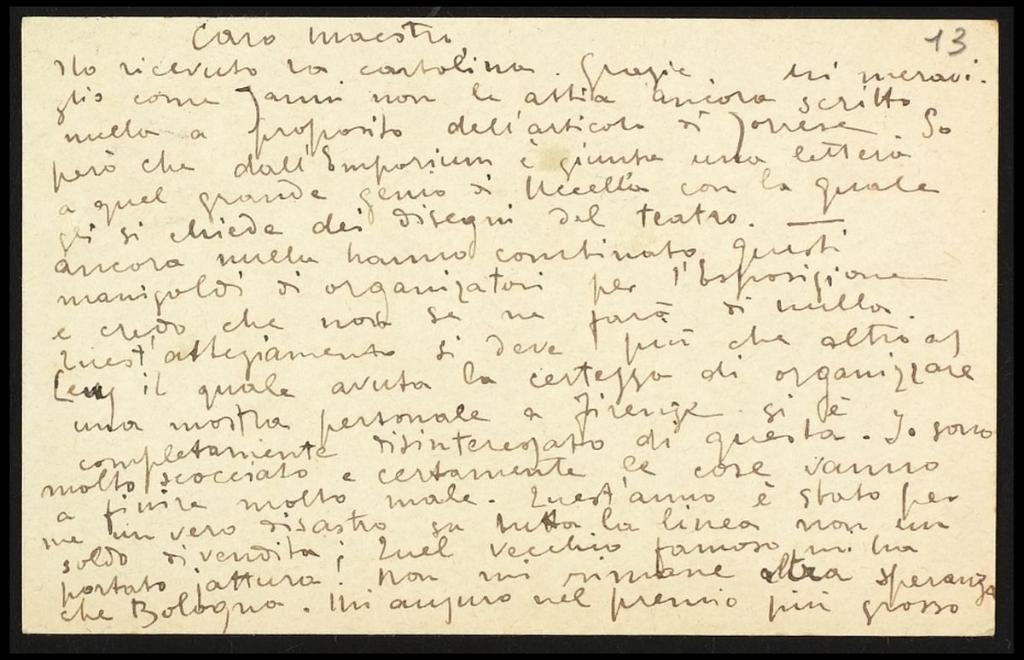 13
Caro maestro,
Ho ricevuto la cartolina. Grazie. Mi meravi-
glio come Janni non le abbia ancora scritto
nulla a proposito dell'articolo di Torrese. So
però che dall'Emporium è giunta una lettera
a quel grande genio di Uccella con la quale
gli si chiede dei disegni del teatro. —
ancora nulla hanno combinato questi
manigoldi di organizzatori per l'Esposizione
e credo che non se ne farà di nulla.
Quest'attegiamento si deve più che altro a
il quale avuta la certezza di organizzare
una mostra personale a Firenze si è
completamente disinteressato di questa. Io sono
molto scocciato e certamente le cose vanno
a finire molto male. Quest'anno è stato per
me un vero disastro su tutta la linea non un
soldo di vendita; Quel vecchio famoso mi ha
portato jattura! Non mi rimane altra speranza
che Bologna. Mi auguro nel premio più grosso